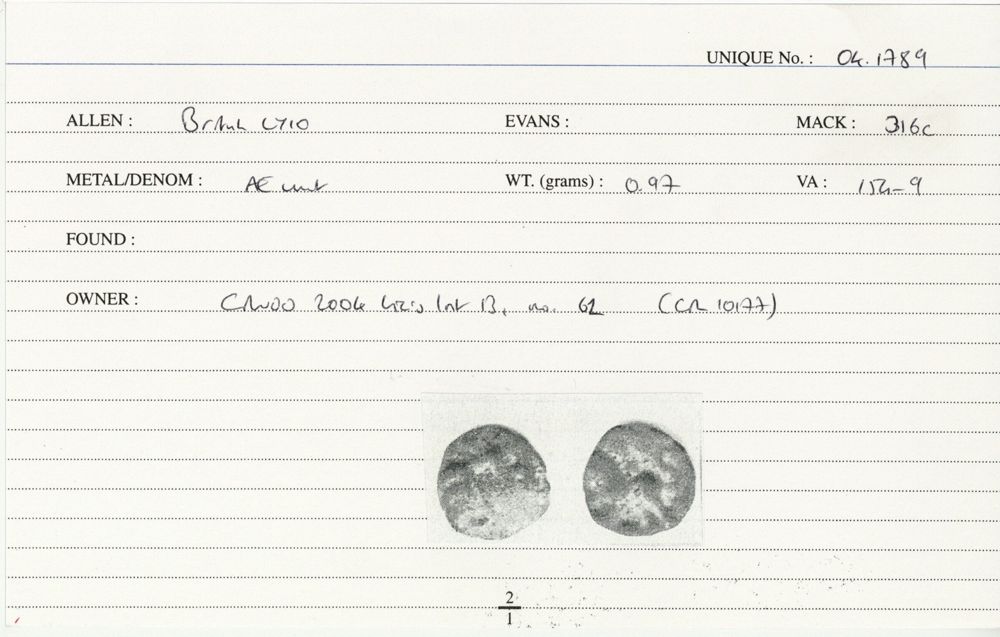 UNIQUE No. : 04.1789
ALLEN : British LY10 EVANS : MACK : 316c
METAL/DENOM : AE unit WT. (grams) : 0.97 VA : 154-9
FOUND :
OWNER : 2004 B, no. 62 (CR 10177)
2
1